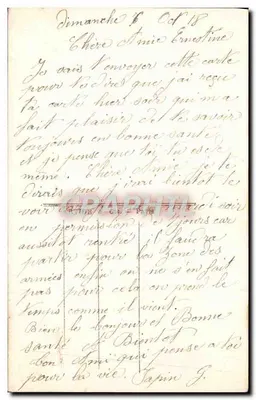 dimanche 6 Oct 18
Chère Amie Ernestine
Je vais t'envoyer cette carte
pour te dire que j'ai reçue
ta carte hier soir qui m'a
fait plaisir et de te savoir
toujours en bonne santé
et je pense que toi tu es de
même. Chère Amie je te
dirais que j'irai bientot te
voir soir
en permission jours car
aussitot rentré il faudra
partir pour la zone des
armées enfin on ne s'en fait
pas pour cela on prend le
temps comme il vient.
Bien le bonjour et Bonne
santé A Bientot
bon Ami qui pense a toi
pour la vie. Papin G.